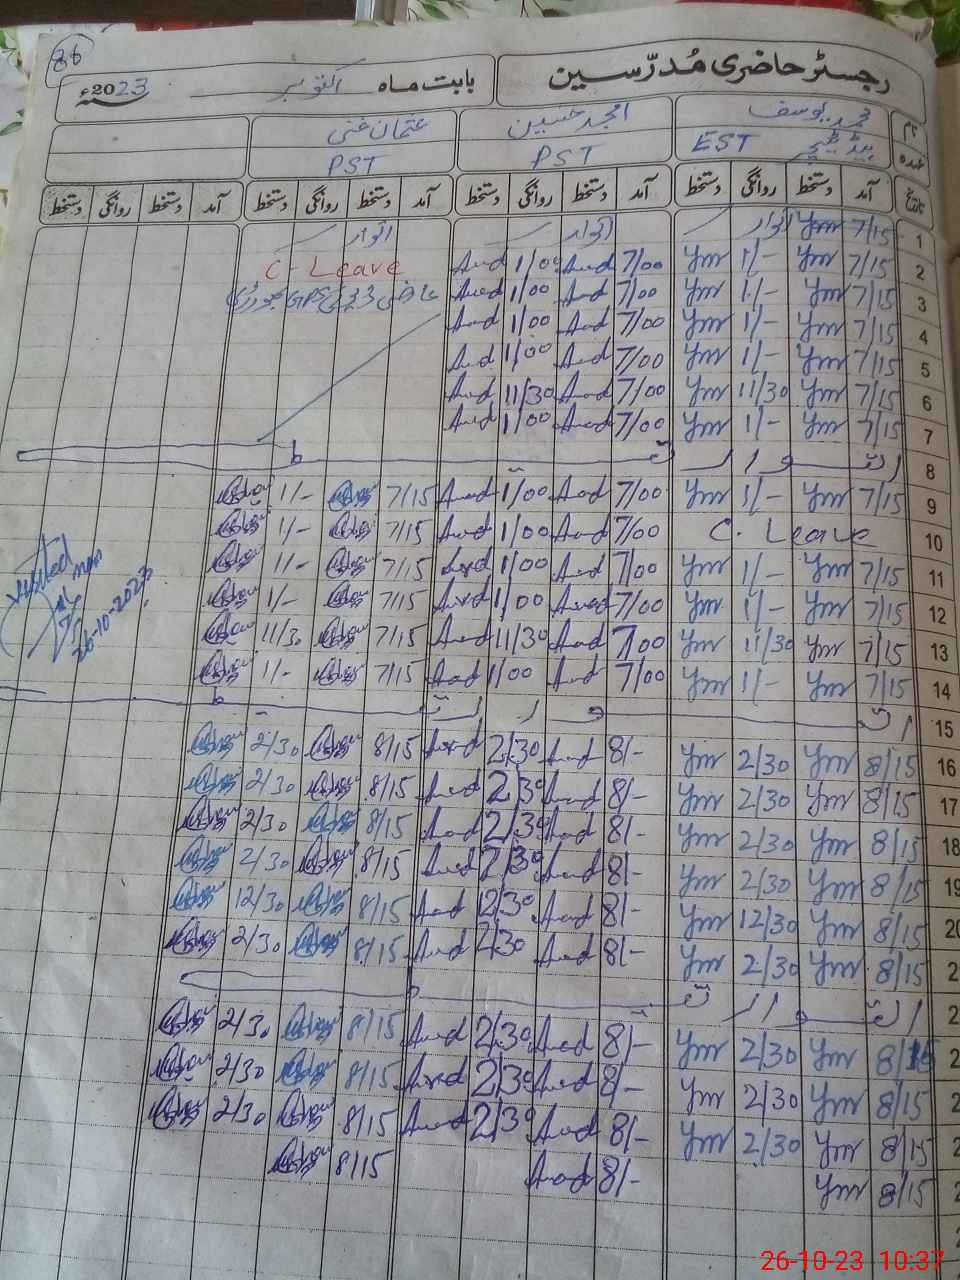 86
رجسٹر حاضری مُدرّسین بابت ماہ اکتوبر 2023ء
نام محمد یوسف امجد حسین عثمان غنی
عہدہ ہیڈ ٹیچر EST PST PST
تاریخ آمد دستخط روانگی دستخط آمد دستخط روانگی دستخط آمد دستخط روانگی دستخط آمد دستخط روانگی دستخط
1 7/15 Ym اتوار اتوار اتوار
2 7/15 Ym 1/- Ym 7/00 Amd 1/00 Amd C-Leave
3 7/15 Ym 1/- Ym 7/00 Amd 1/00 Amd عارضی ڈیوٹی GPS
4 7/15 Ym 1/- Ym 7/00 Amd 1/00 Amd
5 7/15 Ym 1/- Ym 7/00 Amd 1/00 Amd
6 7/15 Ym 11/30 Ym 7/00 Amd 11/30 Amd
7 7/15 Ym 1/- Ym 7/00 Amd 1/00 Amd
8 اتوار
9 7/15 Ym 1/- Ym 7/00 Amd 1/00 Amd 7/15 1/-
10 C. Leave 7/00 Amd 1/00 Amd 7/15 1/-
11 7/15 Ym 1/- Ym 7/00 Amd 1/00 Amd 7/15 1/-
12 7/15 Ym 1/- Ym 7/00 Amd 1/00 Amd 7/15 1/-
13 7/15 Ym 11/30 Ym 7/00 Amd 11/30 Amd 7/15 11/30
14 7/15 Ym 1/- Ym 7/00 Amd 1/00 Amd 7/15 1/-
visited
26-10-2023
15 اتوار
16 8/15 Ym 2/30 Ym 8/- Amd 2/30 Amd 8/15 2/30
17 8/15 Ym 2/30 Ym 8/- Amd 2/30 Amd 8/15 2/30
18 8/15 Ym 2/30 Ym 8/- Amd 2/30 Amd 8/15 2/30
19 8/15 Ym 2/30 Ym 8/- Amd 2/30 Amd 8/15 2/30
20 8/15 Ym 12/30 Ym 8/- Amd 12/30 Amd 8/15 12/30
2 8/15 Ym 2/30 Ym 8/- Amd 2/30 Amd 8/15 2/30
2 اتوار
2 8/15 Ym 2/30 Ym 8/- Amd 2/30 Amd 8/15 2/30
2 8/15 Ym 2/30 Ym 8/- Amd 2/30 Amd 8/15 2/30
2 8/15 Ym 2/30 Ym 8/- Amd 2/30 Amd 8/15 2/30
2 8/15 Ym 8/- Amd 8/15
26-10-23 10:37